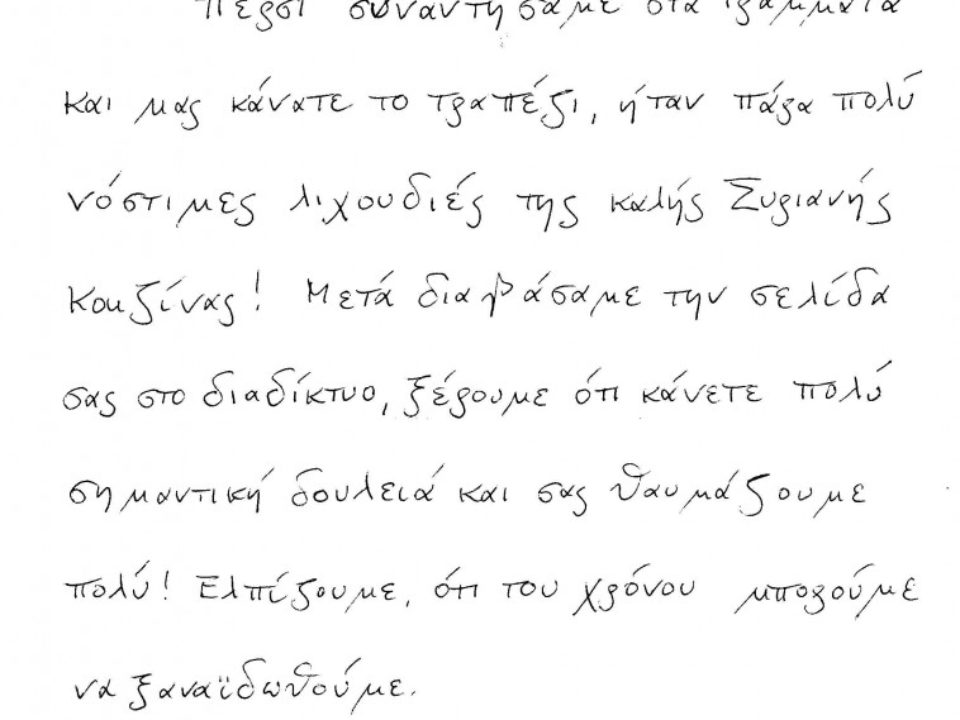 Πέρσι συναντήσαμε στα Γράμματα
και μας κάνατε το τραπέζι, ήταν πάρα πολύ
νόστιμες λιχουδιές της καλής Συριανής
Κουζίνας! Μετά διαβάσαμε την σελίδα
σας στο διαδίκτυο, ξέρουμε ότι κάνετε πολύ
σημαντική δουλειά και σας θαυμάζουμε
πολύ! Ελπίζουμε, ότι του χρόνου μπορούμε
να ξαναϊδωθούμε.